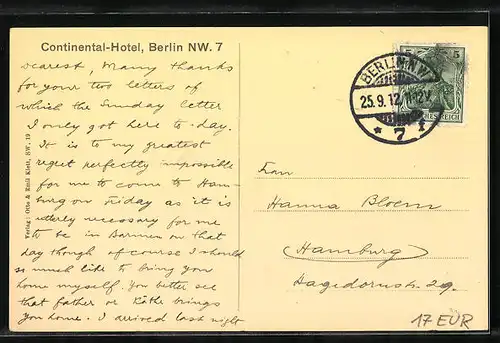 Continental-Hotel, Berlin NW. 7
Dearest, Many thanks
for your two letters of
which the Sunday letter
I only got here to-day.
It is to my greatest
regret perfectly impossible
for me to come to Ham-
burg on Friday as it is
utterly necessary for me
to be in Barmen on that
day though of course I should
so much like to bring you
home myself. You better see
that father or Käthe brings
you home. I arrived last night
Verlag: Otto & Emil Klett, SW. 19
BERLIN N.W.
25.9.12. 11-12V.
* 7 f
5 5
HES REICH
Frau
Hanna Bloem
Hamburg
Hagedornstr. 29.
17 EUR